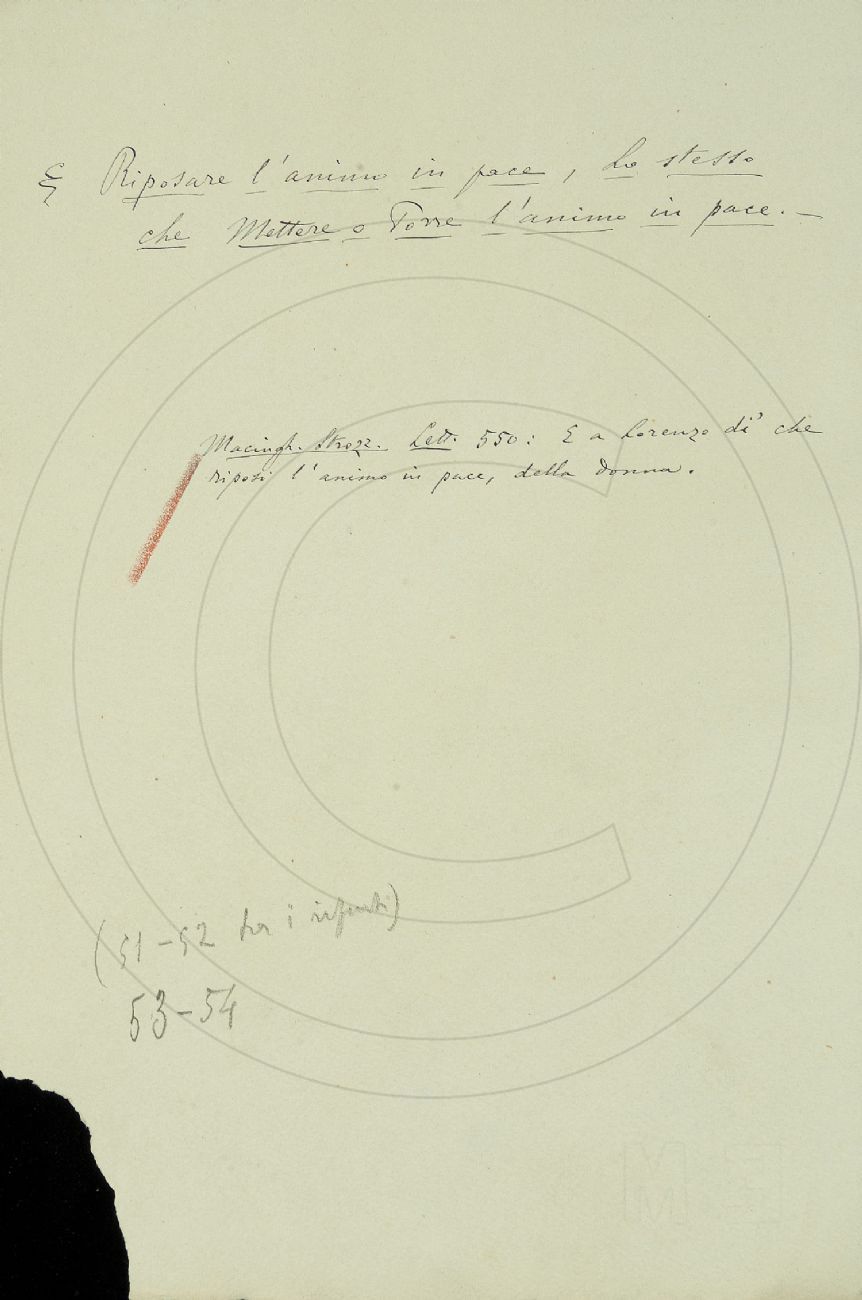 § Riposare l'animo in pace, Lo stesso
che Mettere o Porre l'animo in pace. —
Macingh. Strozz. Lett. 550: E a Lorenzo di' che
riposi l'animo in pace, della donna.
(51-52 tra i rifiuti)
53-54